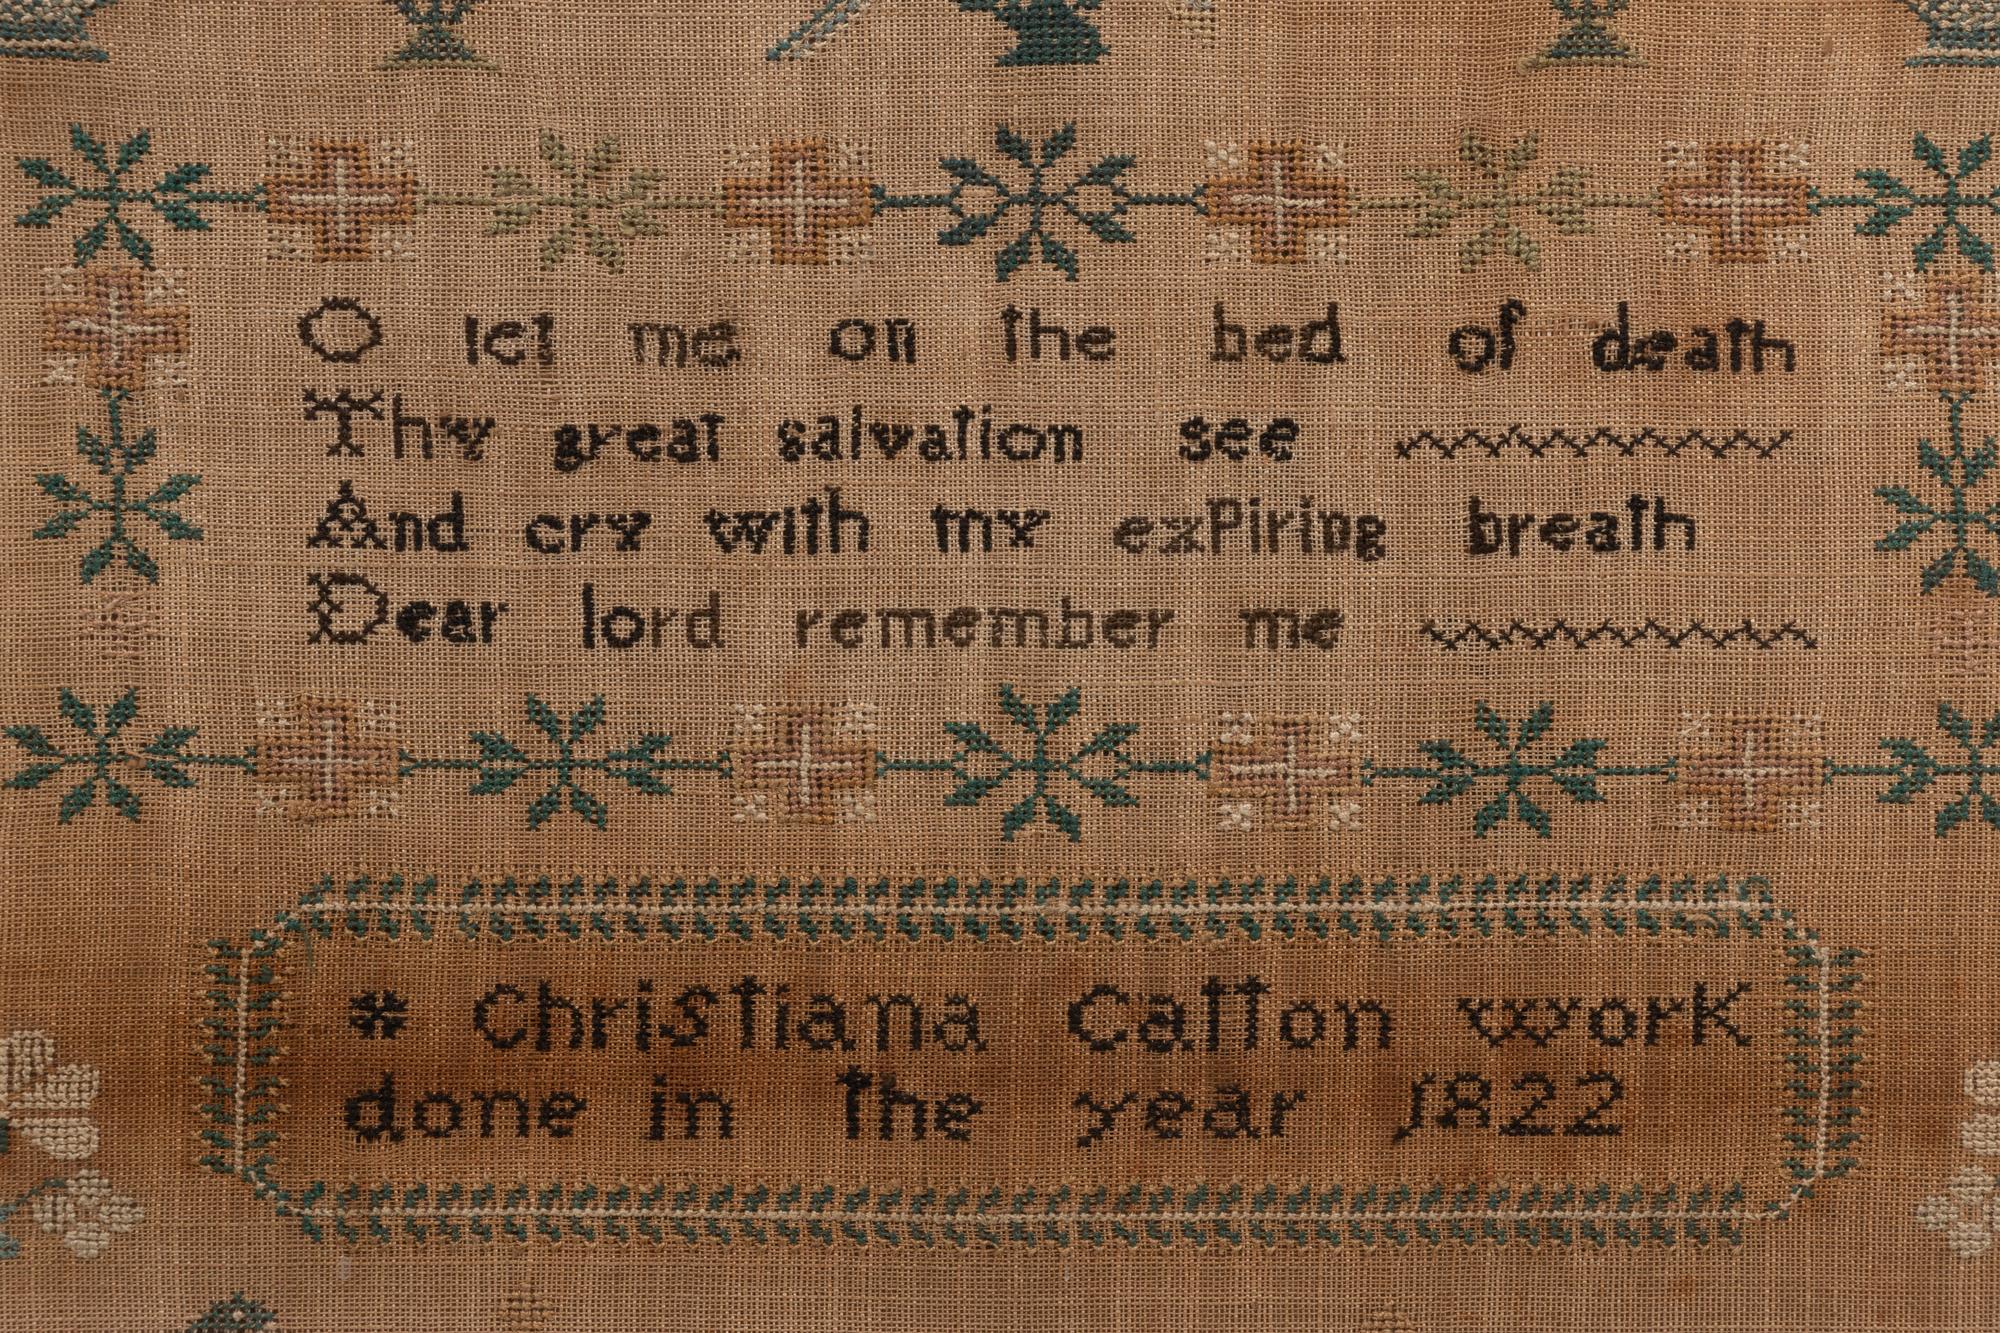 O let me on the bed of death
Thy great salvation see
And cry with my exPiring breath
Dear lord remember me
* Christiana Catton work
done in the year 1822